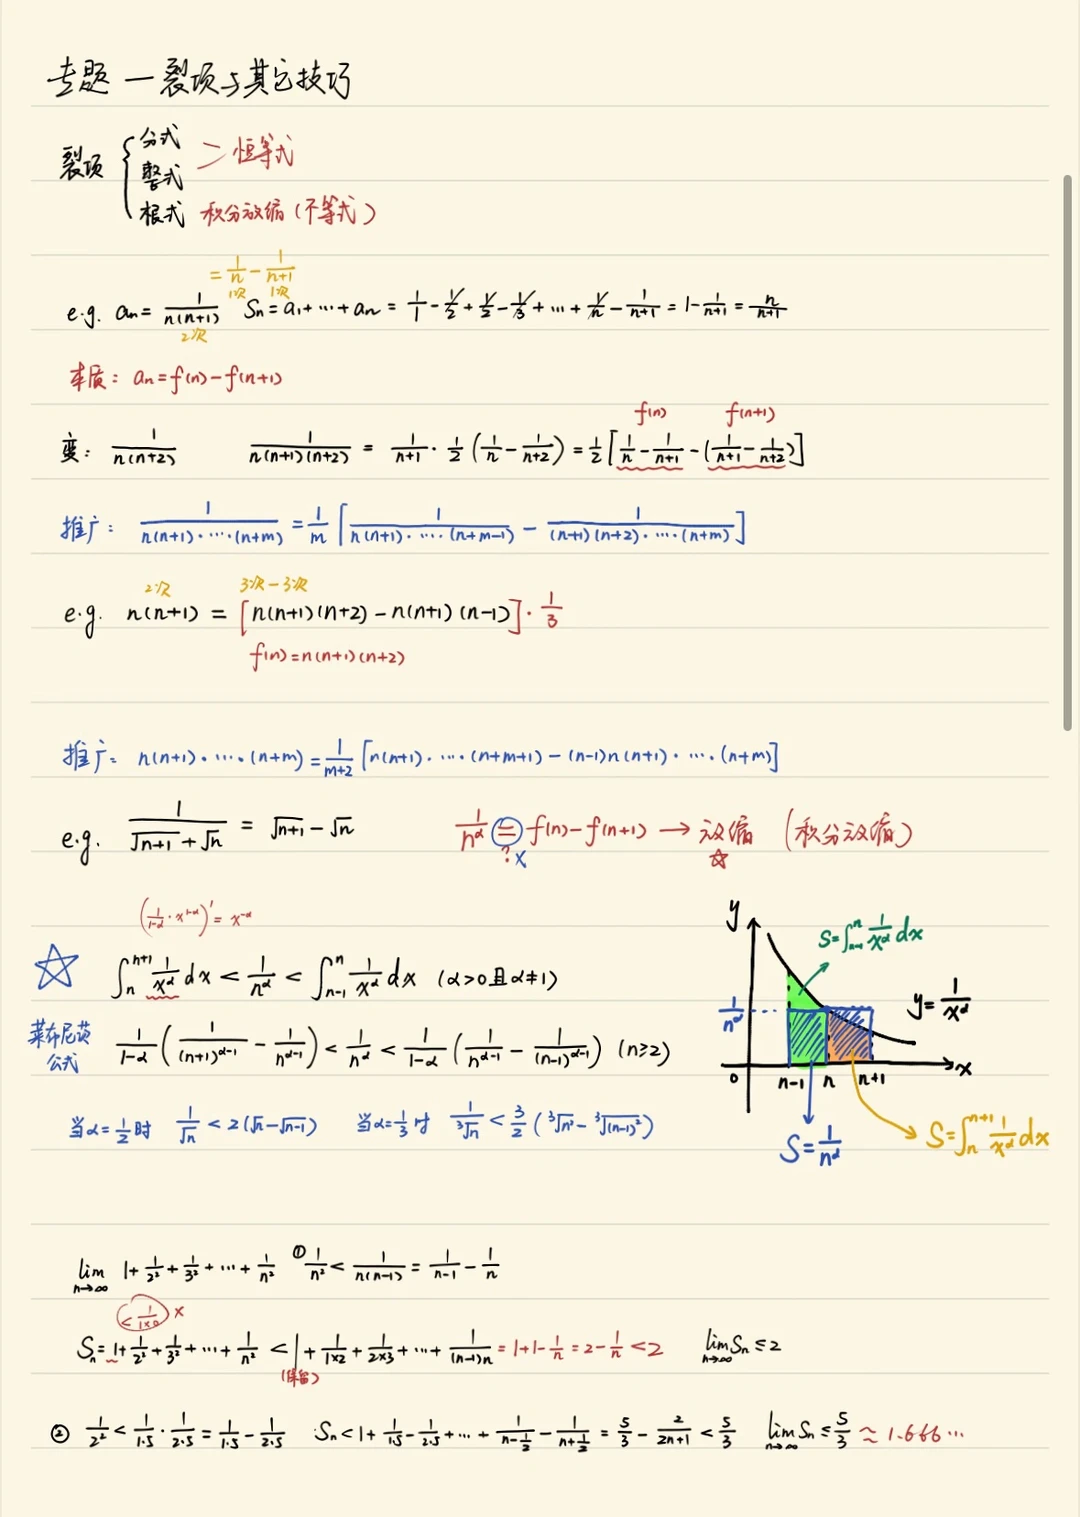 专题一 裂项与其它技巧
裂项 { 分式 整式 > 恒等式
根式 积分放缩(不等式)
= 1/n - 1/(n+1)
1次 1次
e.g. an = 1/(n(n+1)) Sn = a1+…+an = 1/1 - 1/2 + 1/2 - 1/3 + … + 1/n - 1/(n+1) = 1 - 1/(n+1) = n/(n+1)
2次
本质: an = f(n) - f(n+1)
f(n) f(n+1)
变: 1/(n(n+2)) 1/(n(n+1)(n+2)) = 1/(n+1) · 1/2 (1/n - 1/(n+2)) = 1/2 [1/n - 1/(n+1) - (1/(n+1) - 1/(n+2))]
推广: 1/(n(n+1)·…·(n+m)) = 1/m [1/(n(n+1)·…·(n+m-1)) - 1/((n+1)(n+2)·…·(n+m))]
2次 3次-3次
e.g. n(n+1) = [n(n+1)(n+2) - n(n+1)(n-1)] · 1/3
f(n) = n(n+1)(n+2)
推广: n(n+1)·…·(n+m) = 1/(m+2) [n(n+1)·…·(n+m+1) - (n-1)n(n+1)·…·(n+m)]
e.g. 1/(√(n+1) + √n) = √(n+1) - √n 1/n^α = f(n) - f(n+1) → 放缩 (积分放缩)
? × ☆
(1/(1-α) · x^(1-α))' = x^(-α)
☆ ∫_n^(n+1) 1/x^α dx < 1/n^α < ∫_(n-1)^n 1/x^α dx (α>0且α≠1)
莱布尼茨公式 1/(1-α) (1/(n+1)^(α-1) - 1/n^(α-1)) < 1/n^α < 1/(1-α) (1/n^(α-1) - 1/(n-1)^(α-1)) (n≥2)
当α=1/2时 1/√n < 2(√n - √(n-1)) 当α=1/3时 1/∛n < 3/2 (∛n² - ∛(n-1)²)
y
S=∫_(n-1)^n 1/x^α dx
1/n^α
y=1/x^α
0 n-1 n n+1 x
S=1/n^α
S=∫_n^(n+1) 1/x^α dx
lim n→∞ 1 + 1/2² + 1/3² + … + 1/n² ① 1/n² < 1/(n(n-1)) = 1/(n-1) - 1/n
< 1/(1×0) ×
Sn = 1 + 1/2² + 1/3² + … + 1/n² < 1 + 1/(1×2) + 1/(2×3) + … + 1/((n-1)n) = 1+1-1/n = 2-1/n < 2 lim n→∞ Sn ≤ 2
(保留)
② 1/2² < 1/1.5 · 1/2.5 = 1/1.5 - 1/2.5 Sn < 1 + 1/1.5 - 1/2.5 + … + 1/(n-1/2) - 1/(n+1/2) = 5/3 - 2/(2n+1) < 5/3 lim n→∞ Sn ≤ 5/3 ≈ 1.666…